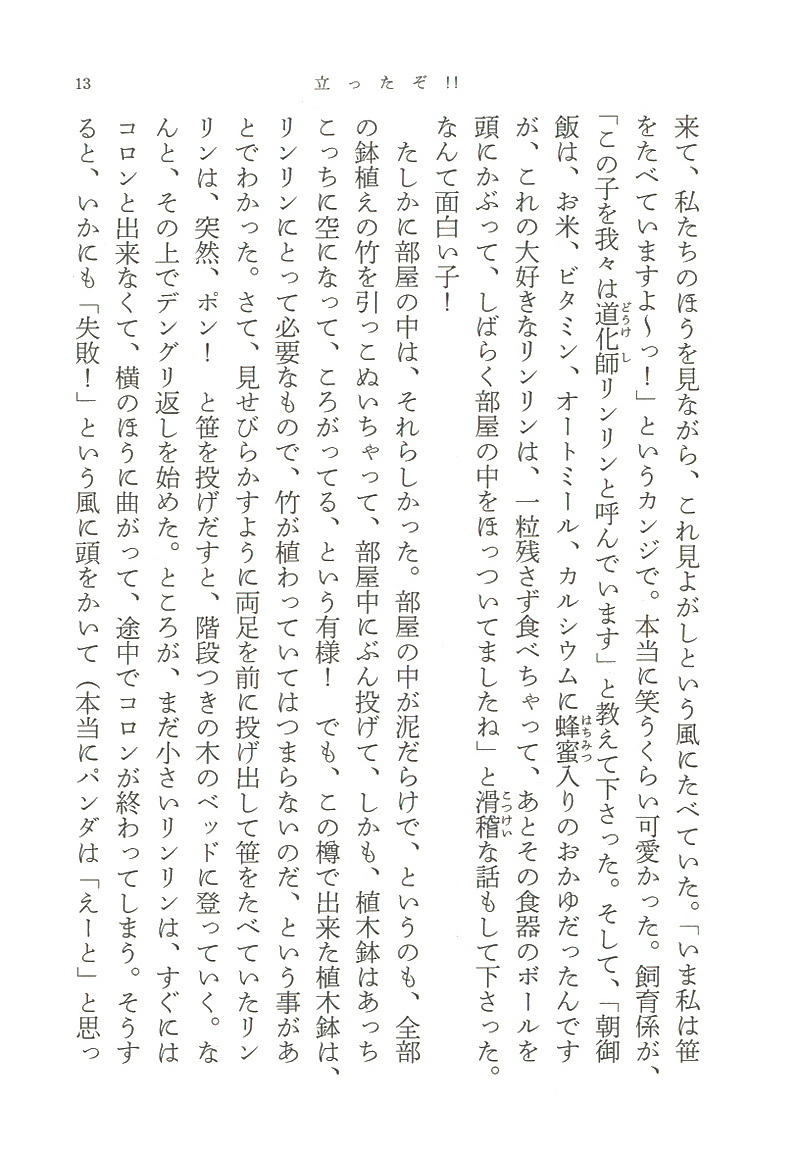 立ったぞ!!
13
来て、私たちのほうを見ながら、これ見よがしという風にたべていた。「いま私は笹
をたべていますよ〜っ！」というカンジで。本当に笑うくらい可愛かった。飼育係が、
「この子を我々は道化師リンリンと呼んでいます」と教えて下さった。そして、「朝御
飯は、お米、ビタミン、オートミール、カルシウムに蜂蜜入りのおかゆだったんです
が、これの大好きなリンリンは、一粒残さず食べちゃって、あとその食器のボールを
頭にかぶって、しばらく部屋の中をほっついてましたね」と滑稽な話もして下さった。
なんて面白い子！
たしかに部屋の中は、それらしかった。部屋の中が泥だらけで、というのも、全部
の鉢植えの竹を引っこぬいちゃって、部屋中にぶん投げて、しかも、植木鉢はあっち
こっちに空になって、ころがってる、という有様！　でも、この樽で出来た植木鉢は、
リンリンにとって必要なもので、竹が植わっていてはつまらないのだ、という事があ
とでわかった。さて、見せびらかすように両足を前に投げ出して笹をたべていたリン
リンは、突然、ポン！　と笹を投げだすと、階段つきの木のベッドに登っていく。な
んと、その上でデングリ返しを始めた。ところが、まだ小さいリンリンは、すぐには
コロンと出来なくて、横のほうに曲がって、途中でコロンが終わってしまう。そうす
ると、いかにも「失敗！」という風に頭をかいて（本当にパンダは「えーと」と思っ